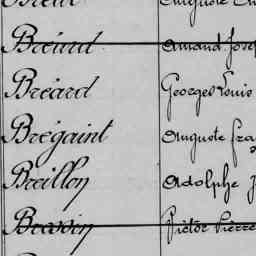 Bréard Amand Jose
Bréard Georges Louis
Brégaint Auguste Fra
Breillon Adolphe J
Victor Pierre